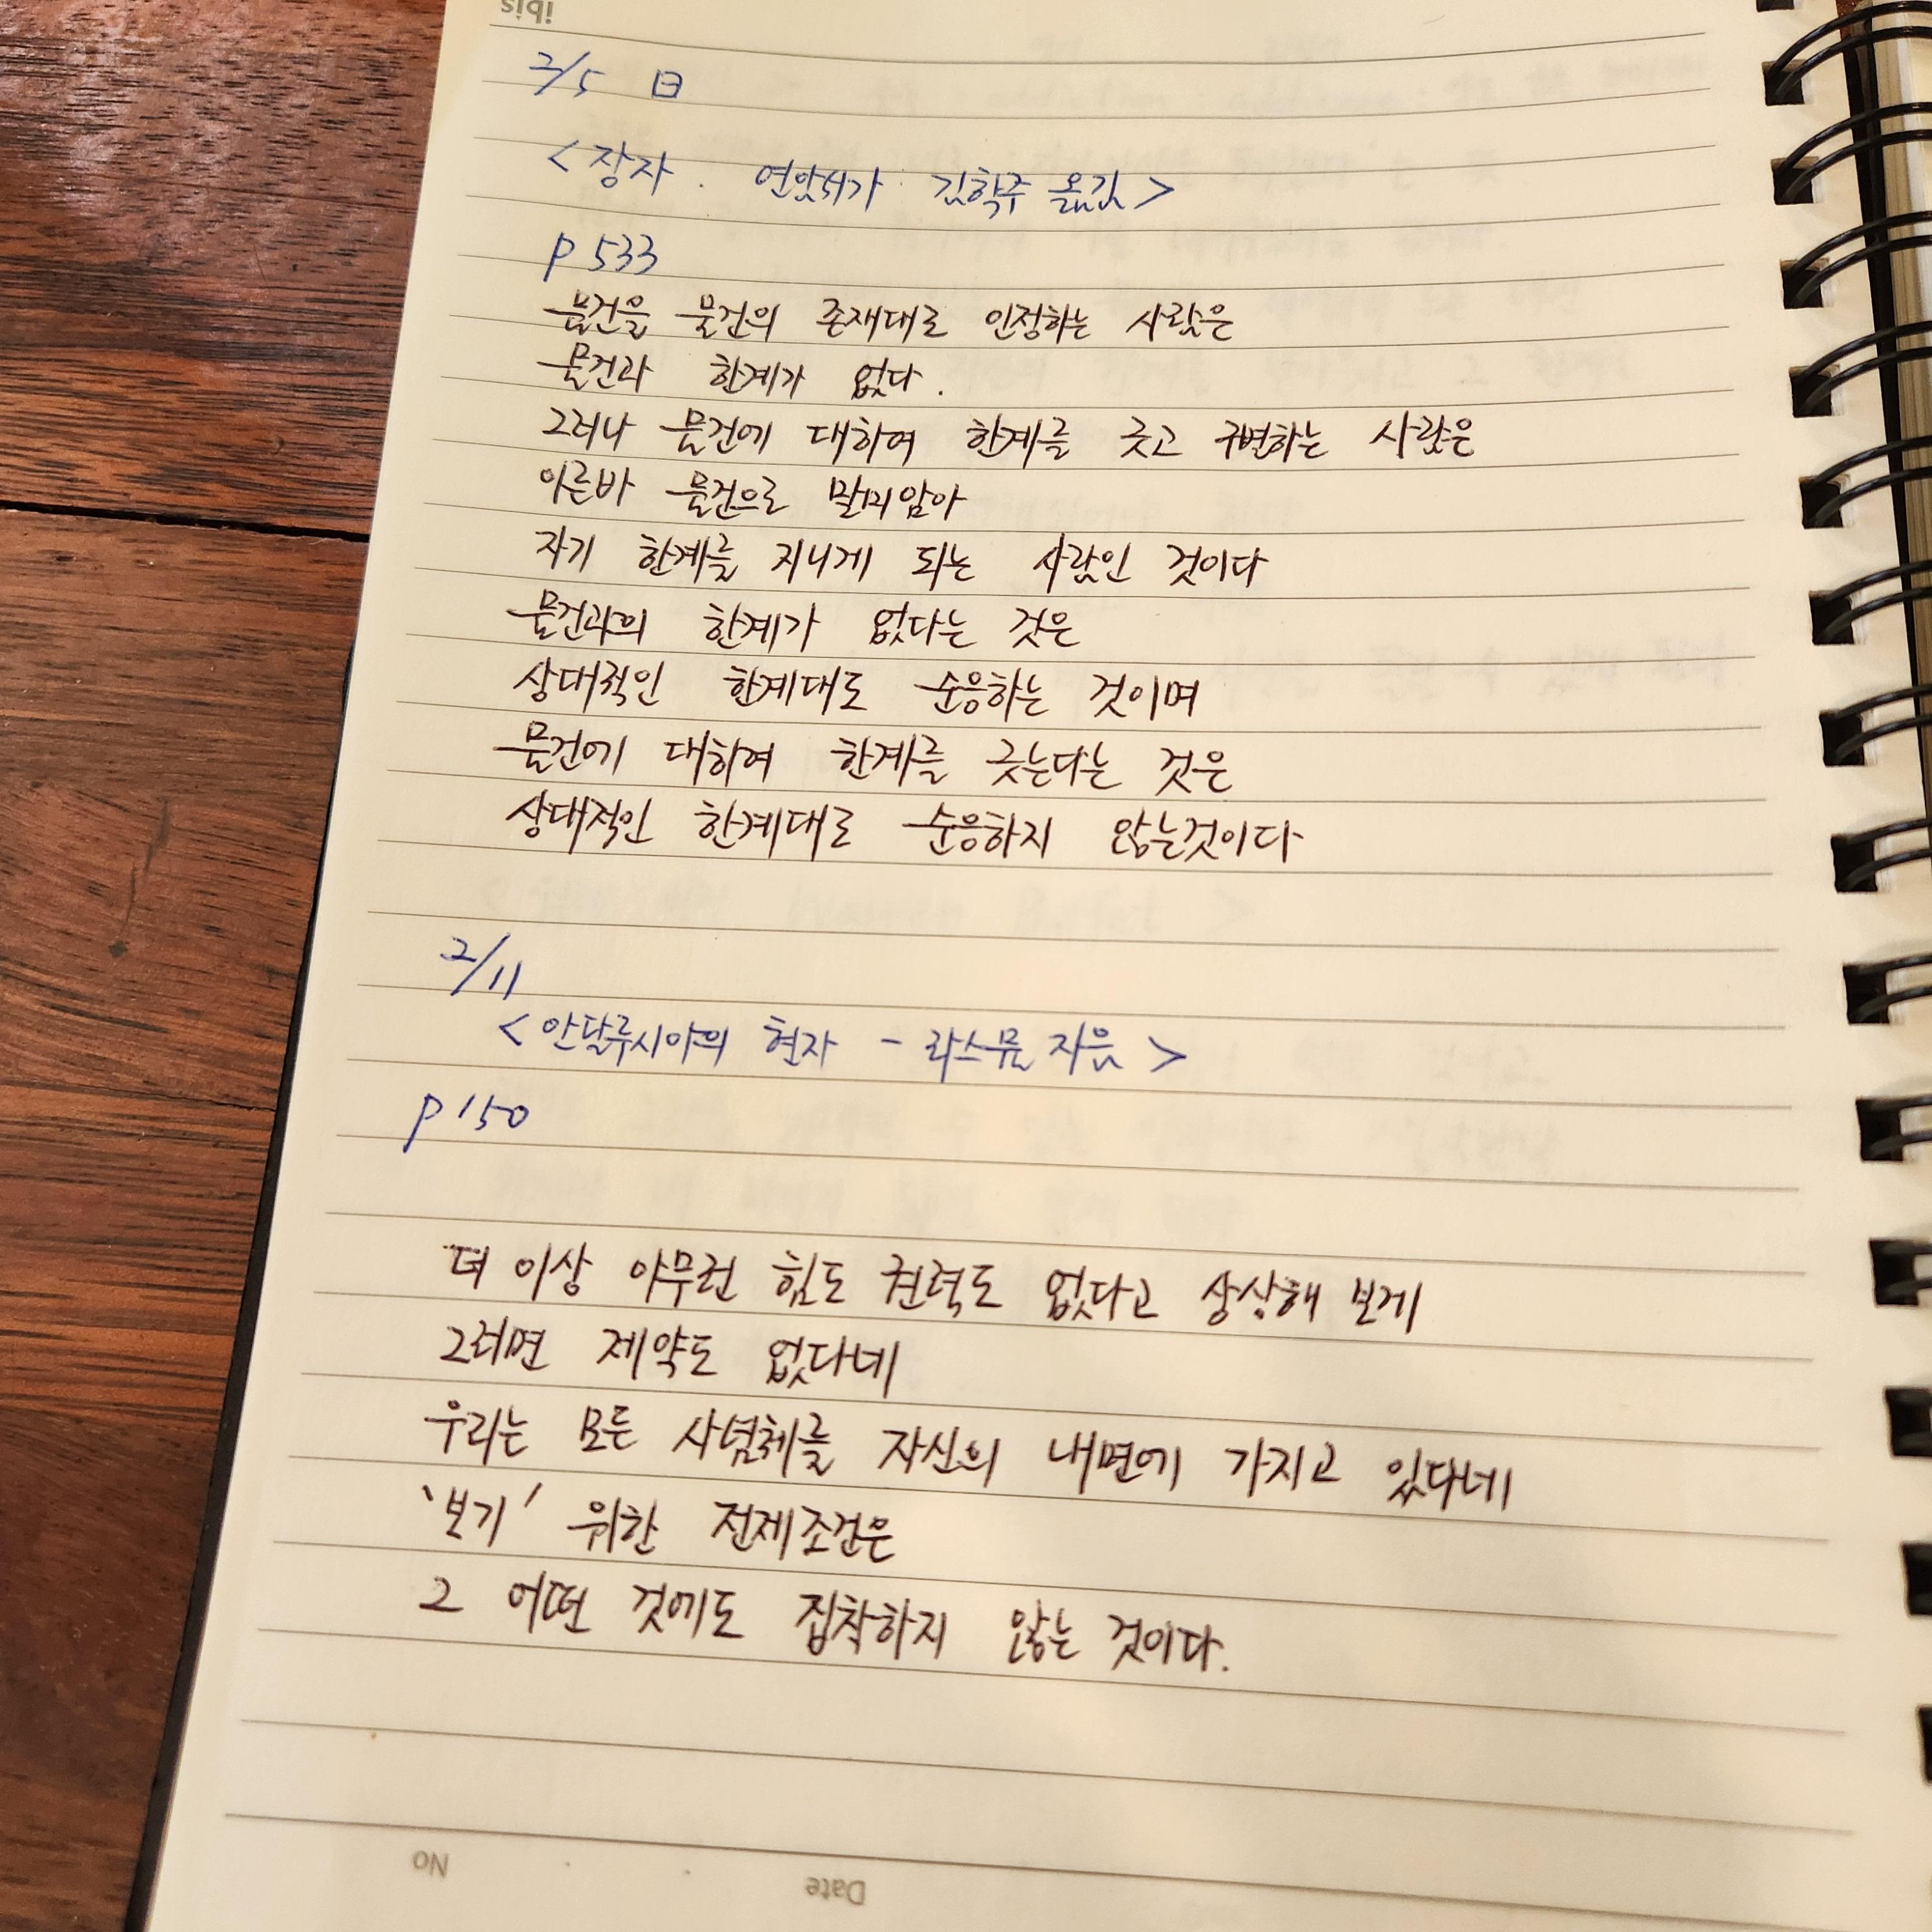 ibis
2/5 日
<장자. 연암서가. 김학주 옮김>
p 533
물건을 물건의 존재대로 인정하는 사람은
물건과 한계가 없다.
그러나 물건에 대하여 한계를 긋고 구별하는 사람은
이른바 물건으로 말미암아
자기 한계를 지니게 되는 사람인 것이다
물건과의 한계가 없다는 것은
상대적인 한계대로 순응하는 것이며
물건에 대하여 한계를 긋는다는 것은
상대적인 한계대로 순응하지 않는것이다
2/11
<안달루시아의 현자 - 라스뮴 지음>
p 150
더 이상 아무런 힘도 권력도 없다고 상상해 보게
그러면 제약도 없다네
우리는 모든 사념체를 자신의 내면에 가지고 있다네
'보기' 위한 전제조건은
그 어떤 것에도 집착하지 않는 것이다.
No Date